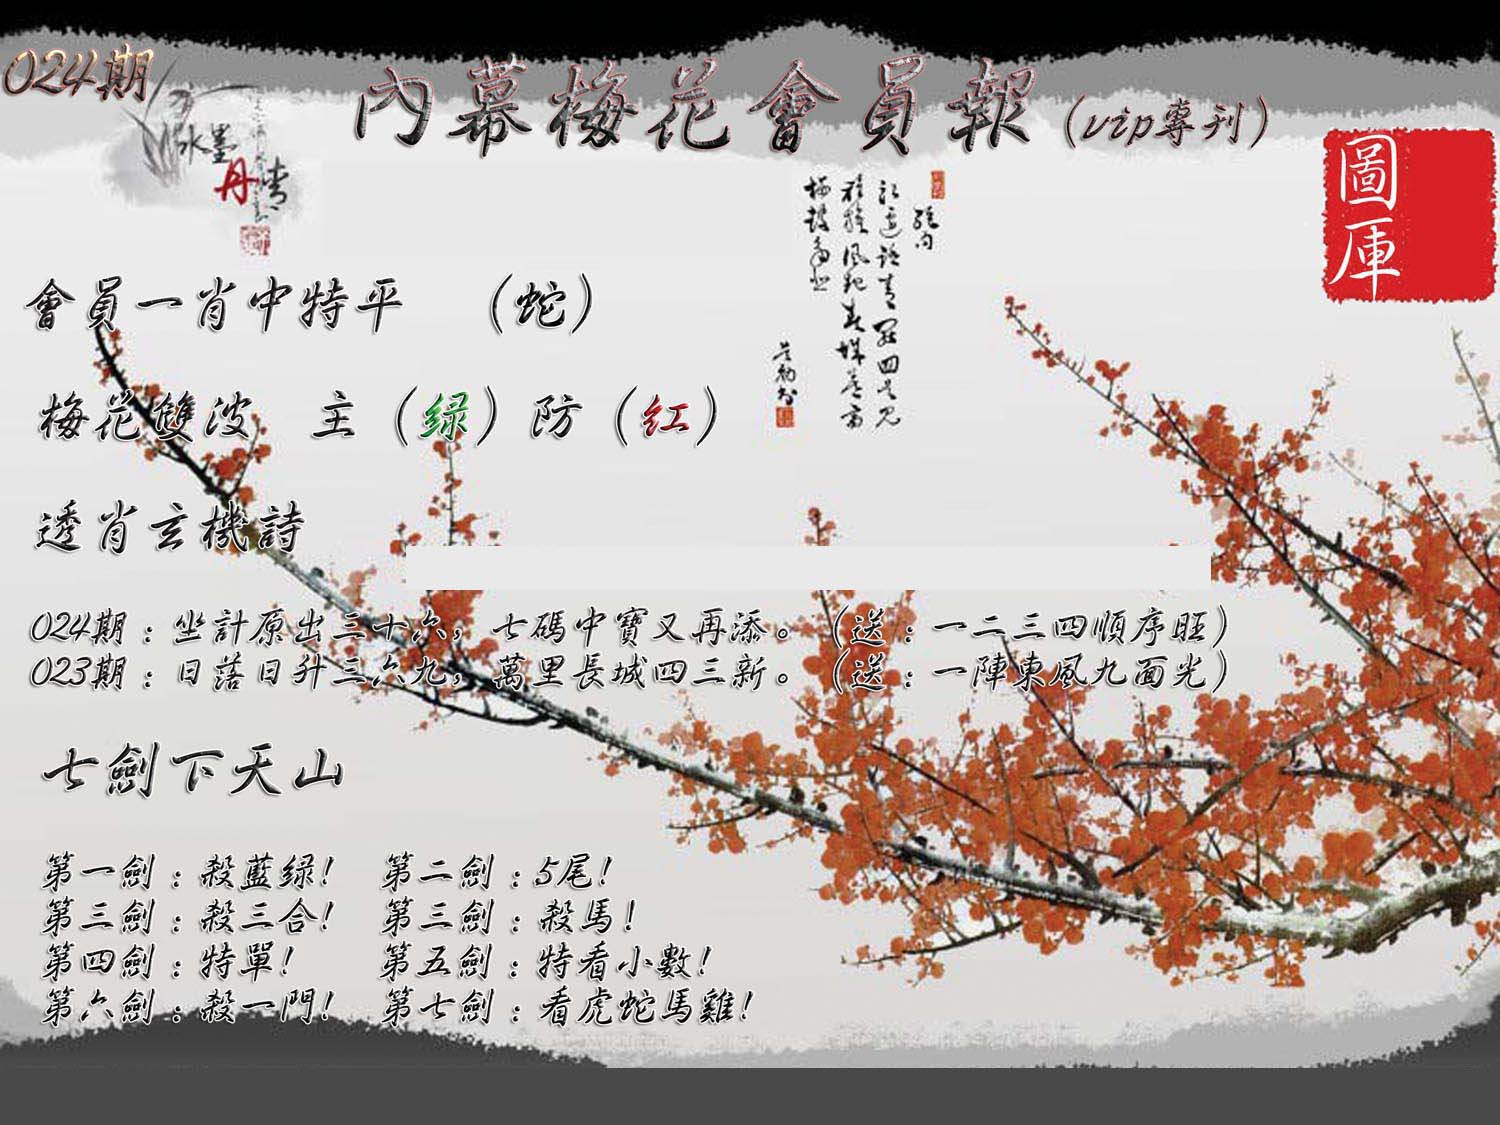 024期
內幕梅花會員報(vip專刊)
水墨
丹青
圖庫
會員一肖中特平 (蛇)
梅花雙波 主(绿)防(红)
透肖玄機詩
024期:坐計原出三十六,七碼中寶又再添。(送:一二三四順序旺)
023期:日落日升三六九,萬里長城四三新。(送:一陣東風九面光)
七劍下天山
第一劍:殺藍绿! 第二劍:5尾!
第三劍:殺三合! 第三劍:殺馬!
第四劍:特單! 第五劍:特看小數!
第六劍:殺一門! 第七劍:看虎蛇馬雞!